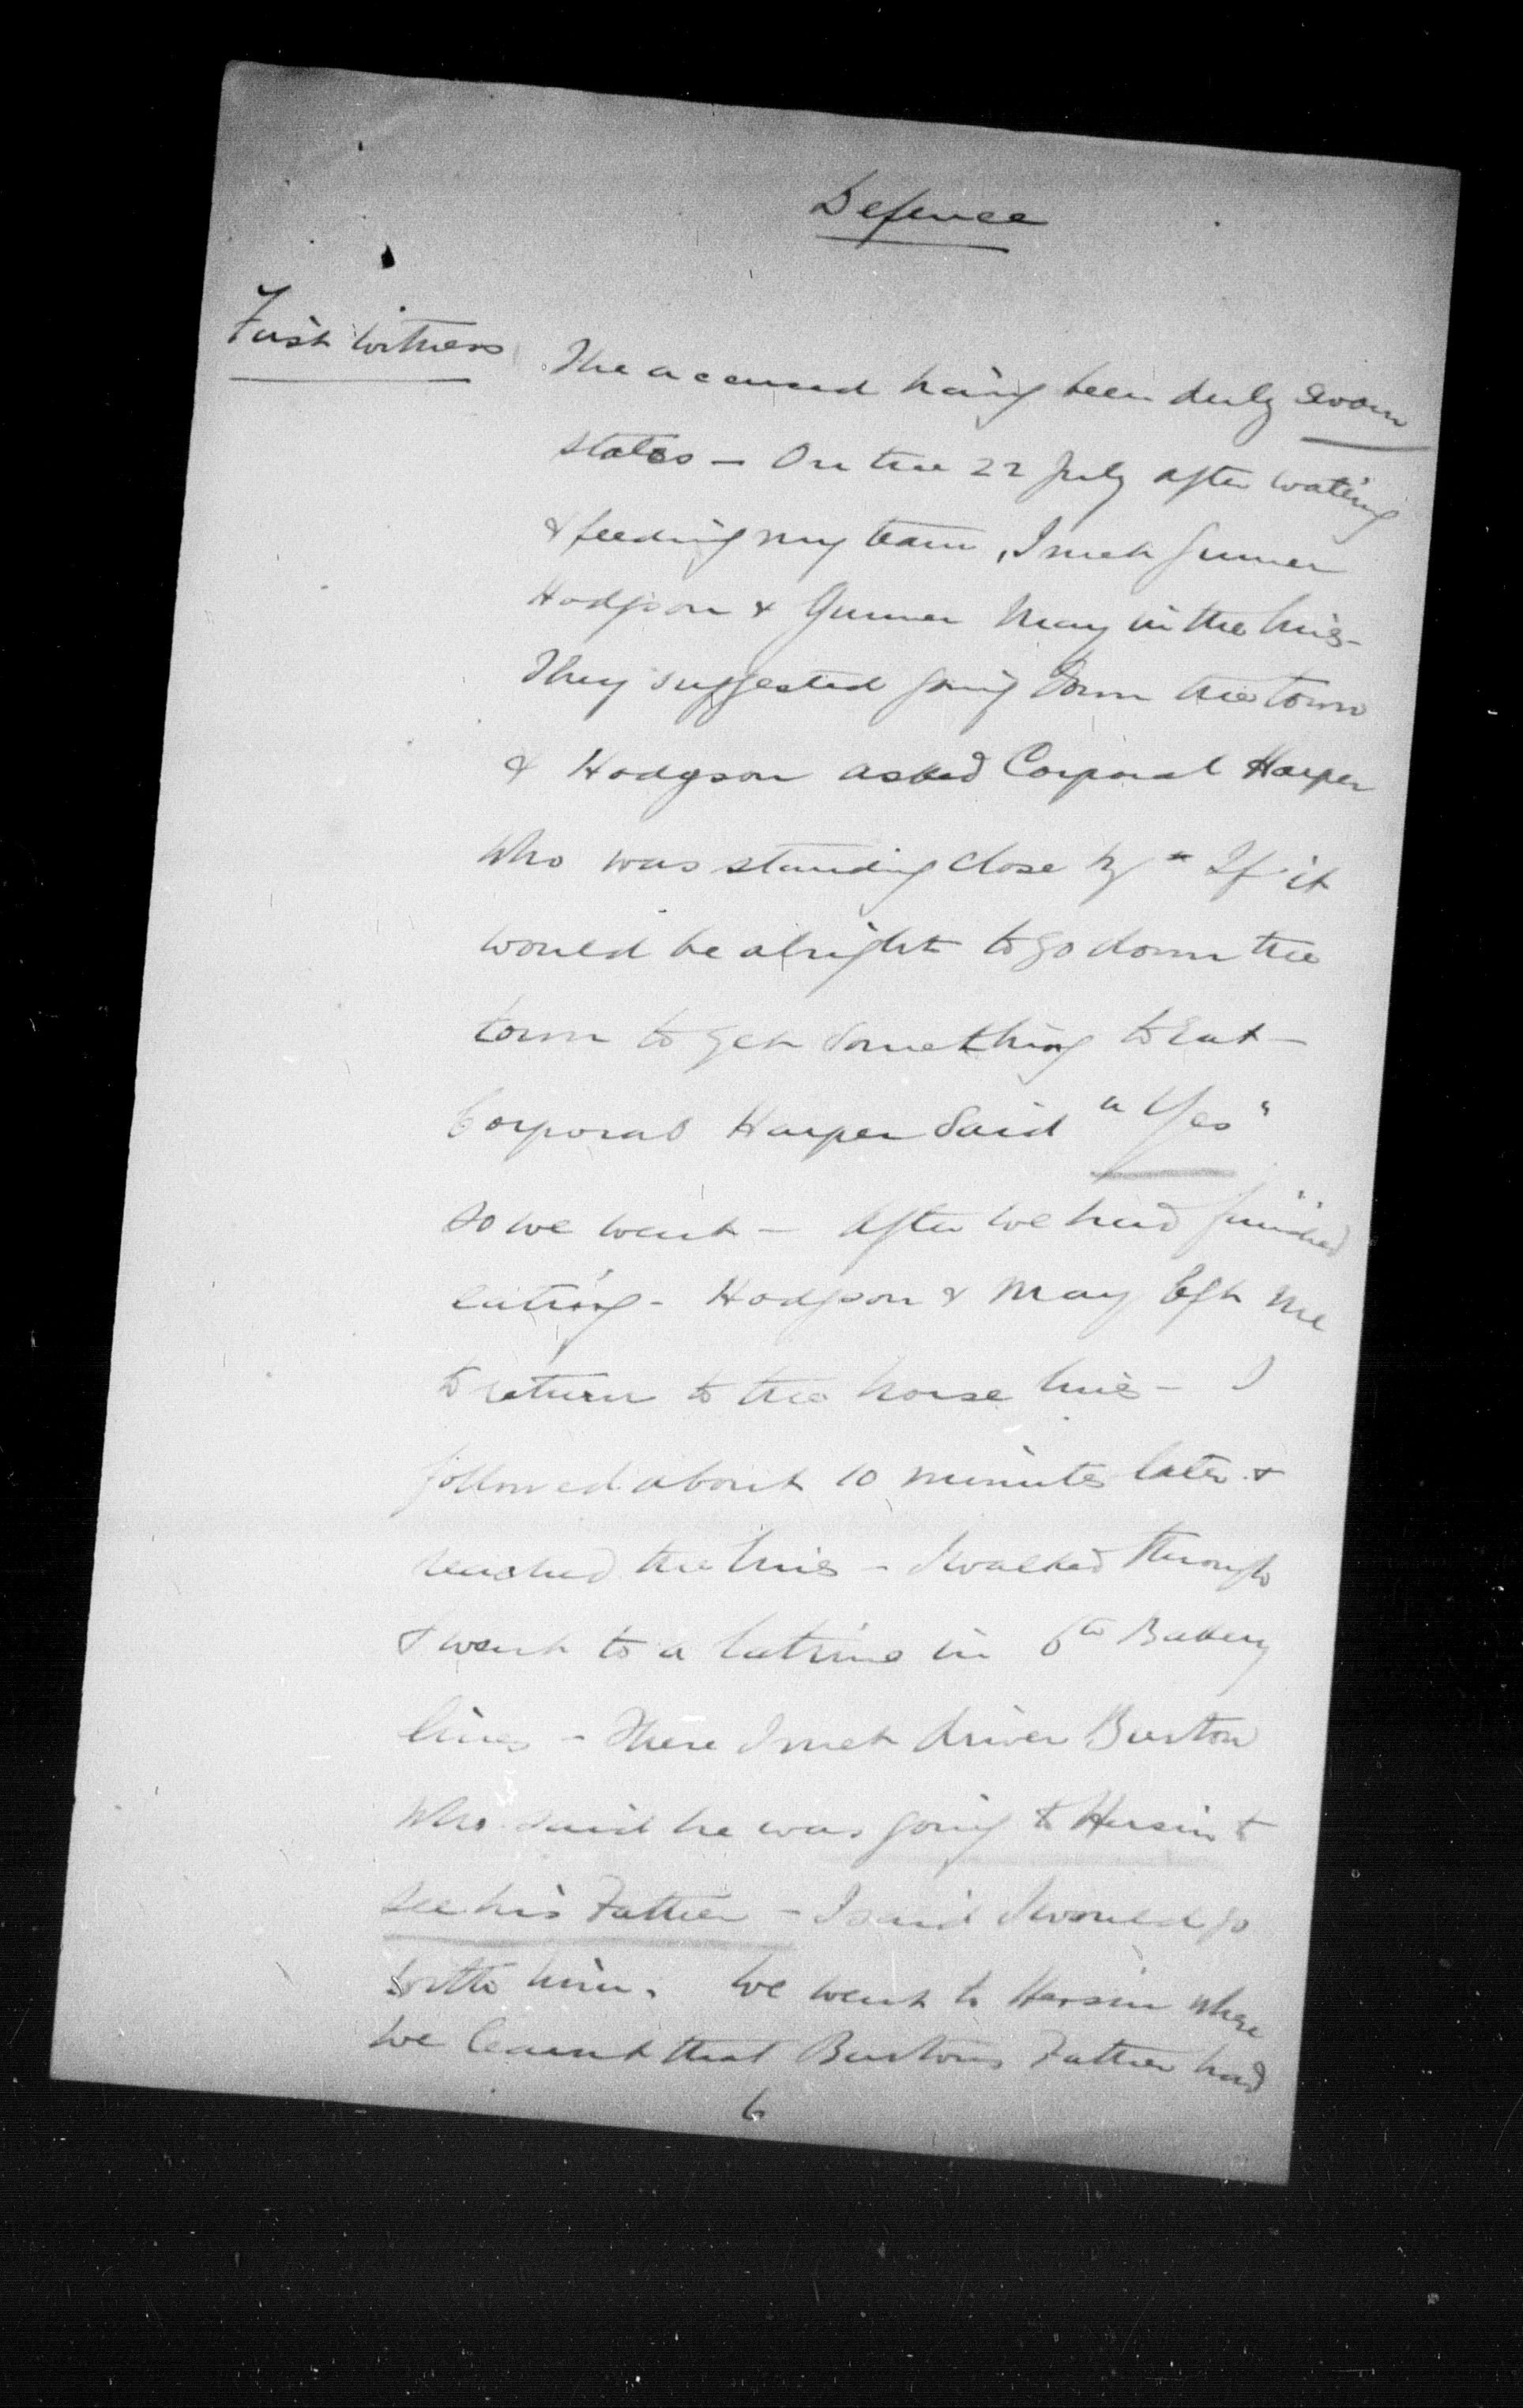 Defence
First Witness
The accused having been duly sworn
states – On the 22 July after watering
& feeding my team, I met Gunner
Hodgson & Gunner May in the lines –
They suggested going down the town
& Hodgson asked Corporal Harper
who was standing close by "If it
would be alright to go down the
town to get something to eat –
Corporal Harper said "Yes"
so we went – After we had finished
eating – Hodgson & May left me
to return to the horse lines – I
followed about 10 minutes later &
reached the lines – I walked through
& went to a latrine in 6th Battery
lines – There I met driver Burton
who said he was going to Hersin to
see his Father – I said I would go
with him. We went to Hersin where
we learnt that Burtons Father had
6